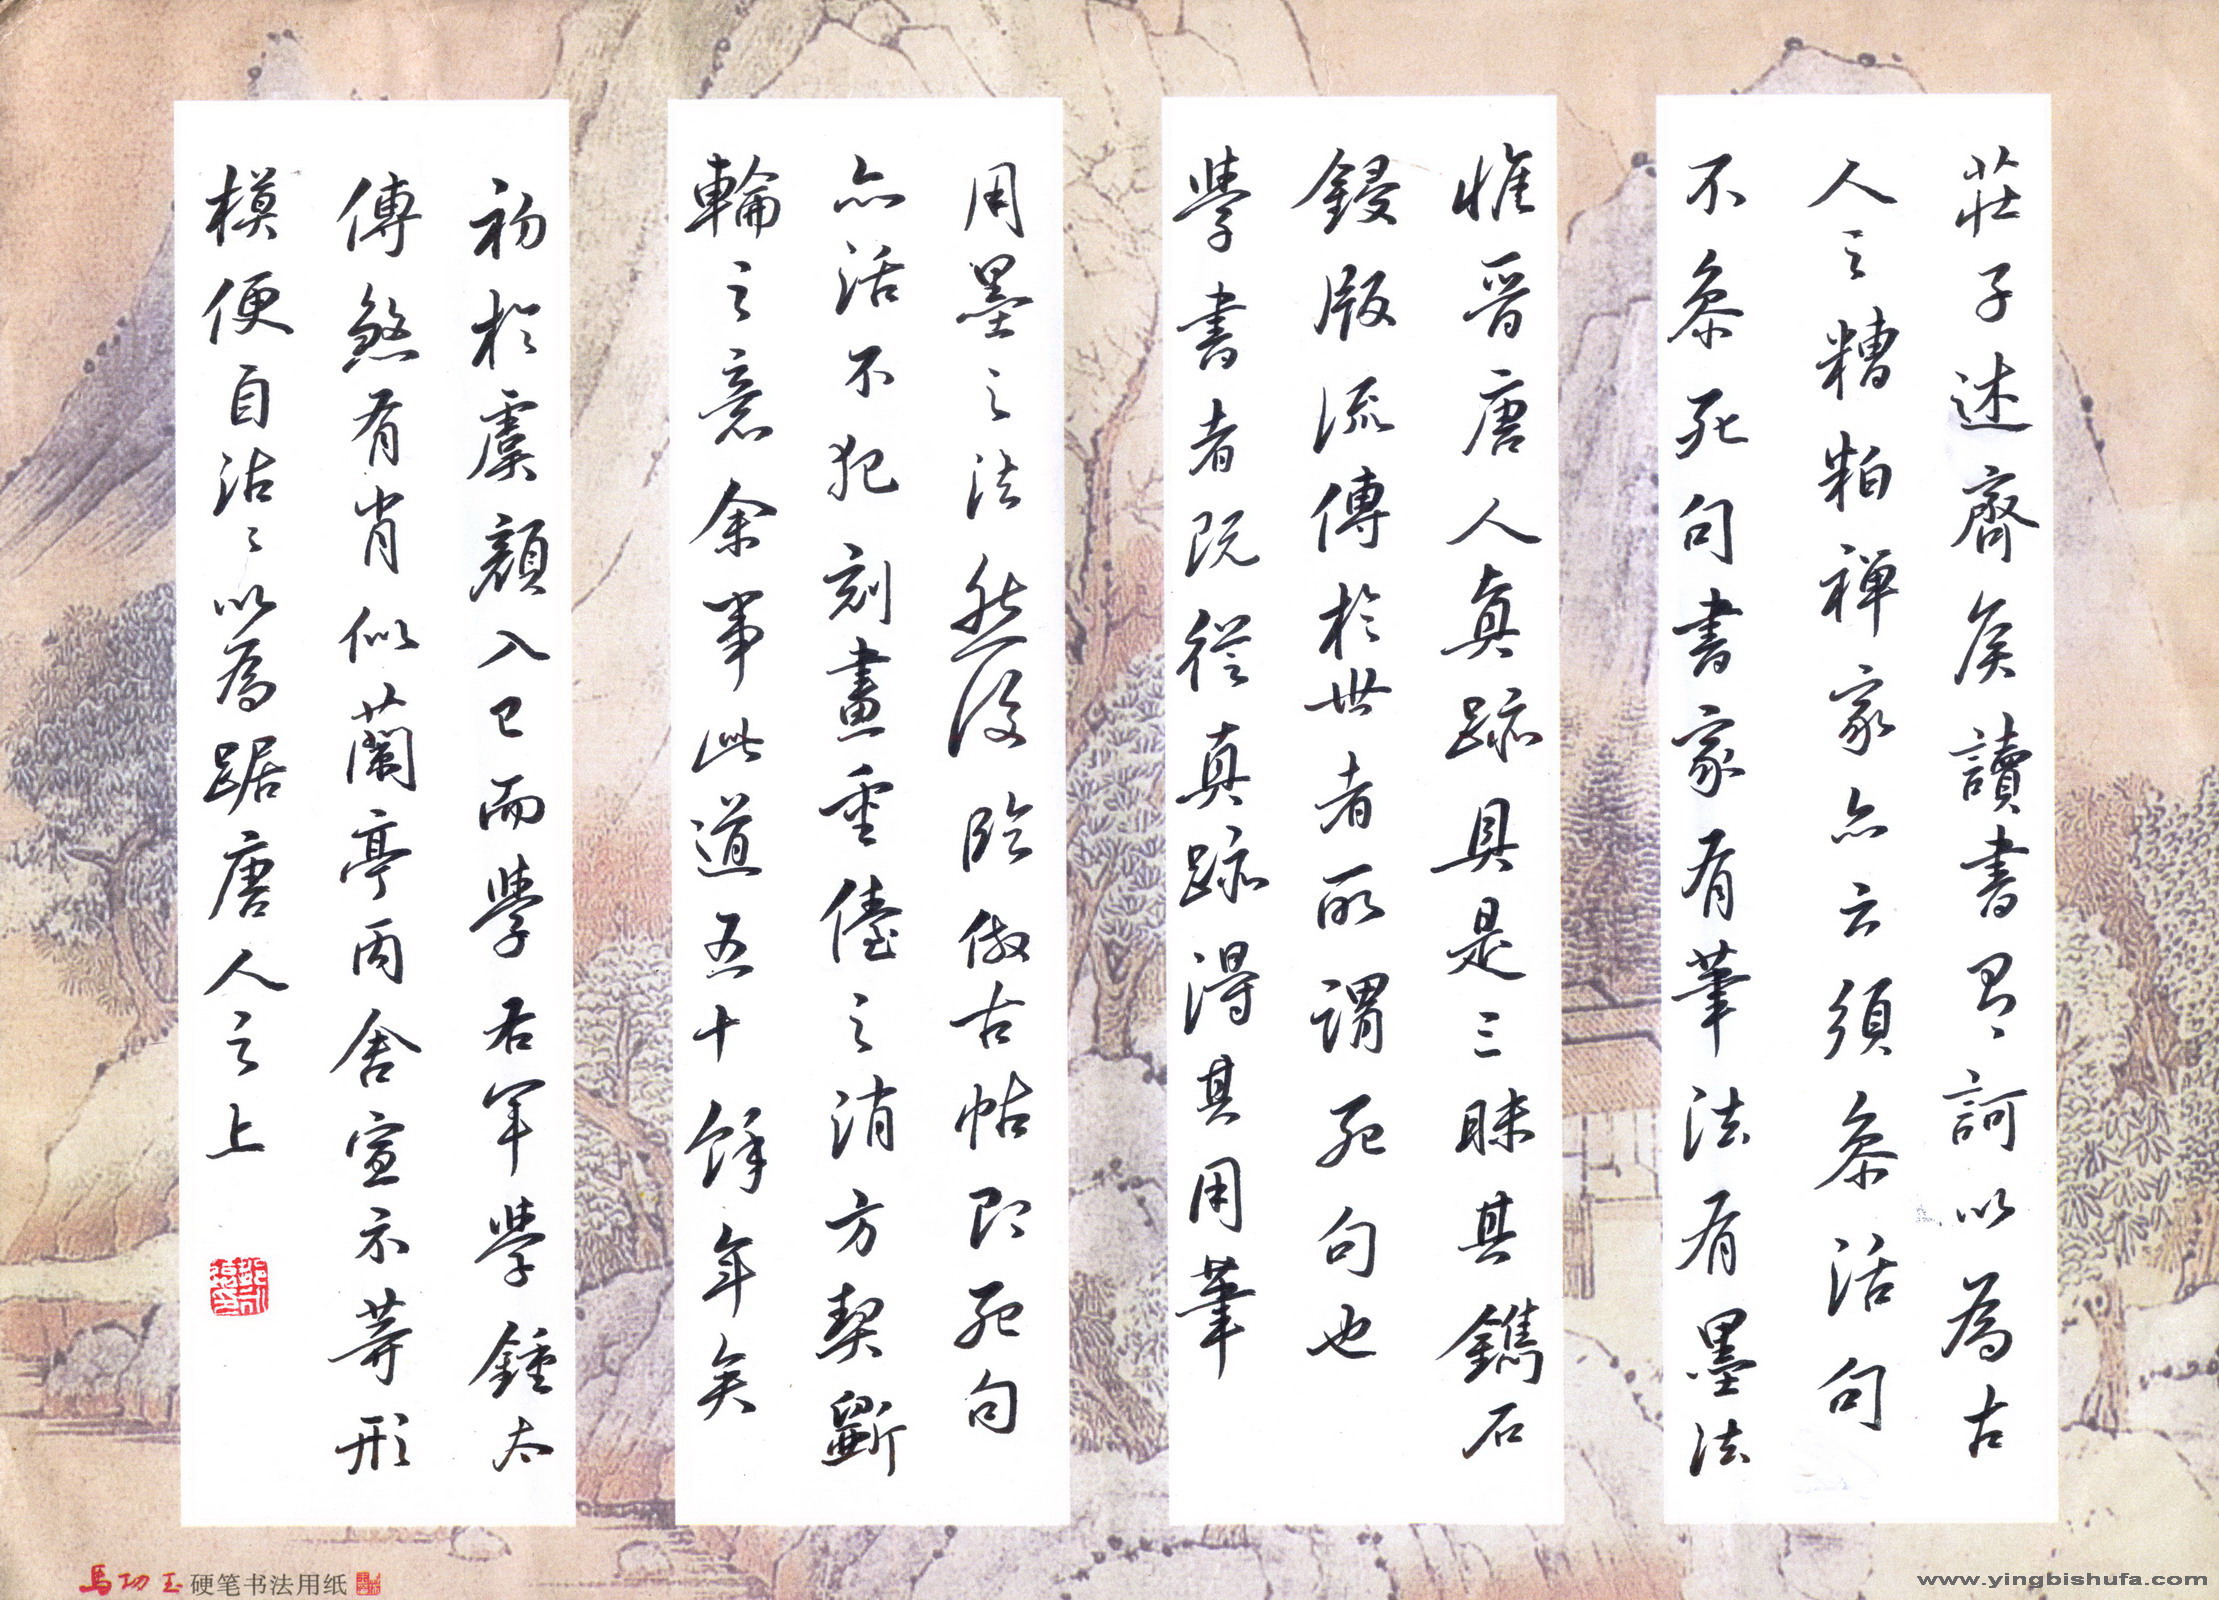 莊子述齊侯讀書有訶以為古
人之糟粕禪家亦云須參活句
不參死句書家有筆法有墨法
惟晉唐人真跡具是三昧其鐫石
鋟版流傳於世者所謂死句也
學書者既從真跡得其用筆
用墨之法然後臨倣古帖即死句
亦活不犯刻畫重儓之消方契斲
輪之意余事此道五十餘年矣
初於虞顏入已而學右軍學鍾太
傅煞有肖似蘭亭丙舍宣示等形
模便自沾沾以為踞唐人之上
馬功玉硬笔书法用纸
www.yingbishufa.com